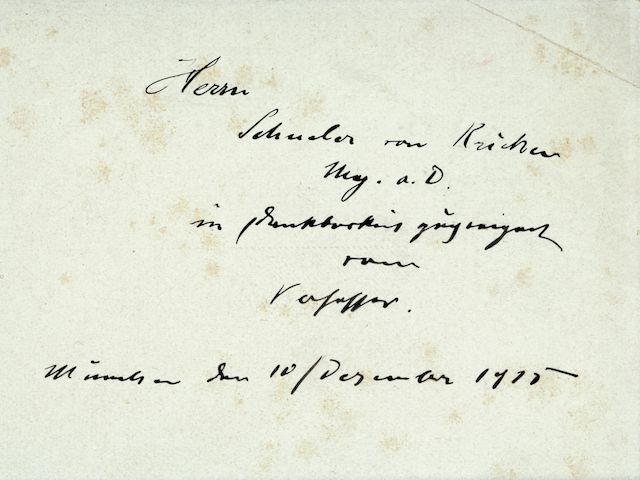 Herrn
Schueler von Krieken
Maj. a. D.
in Dankbarkeit zugeeignet
vom
Verfasser.
München den 10/Dezember 1925